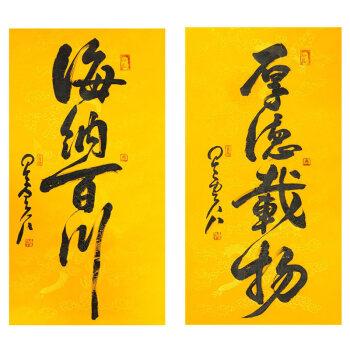 海纳百川
厚德载物